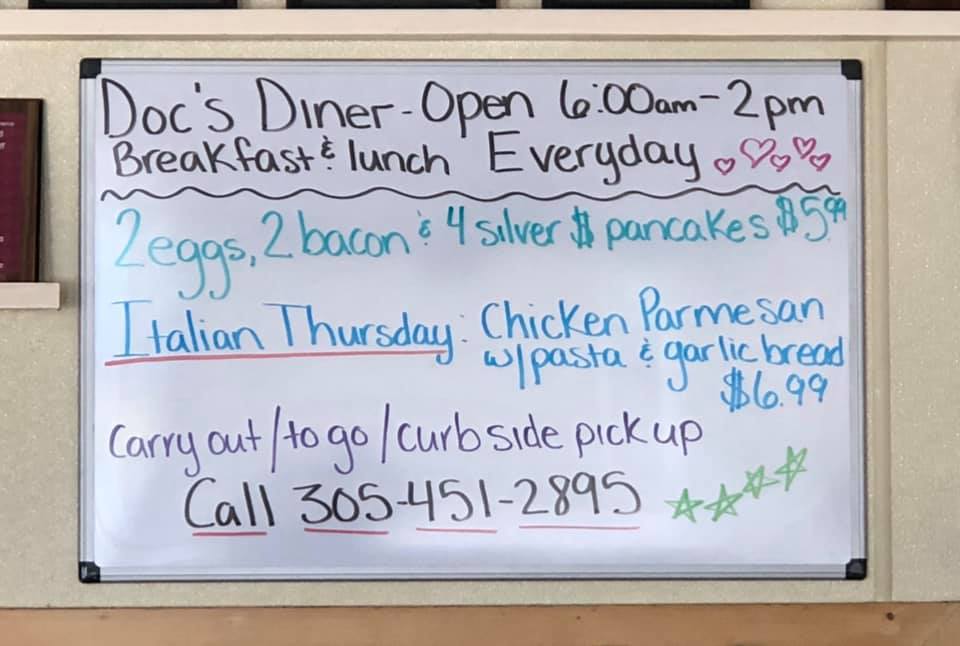 Doc's Diner - Open 6:00am - 2pm
Breakfast & lunch Everyday
2 eggs, 2 bacon & 4 silver $ pancakes $5.99
Italian Thursday: Chicken Parmesan
w/pasta & garlic bread
$6.99
Carry out/to go/curbside pick up
Call 305-451-2895